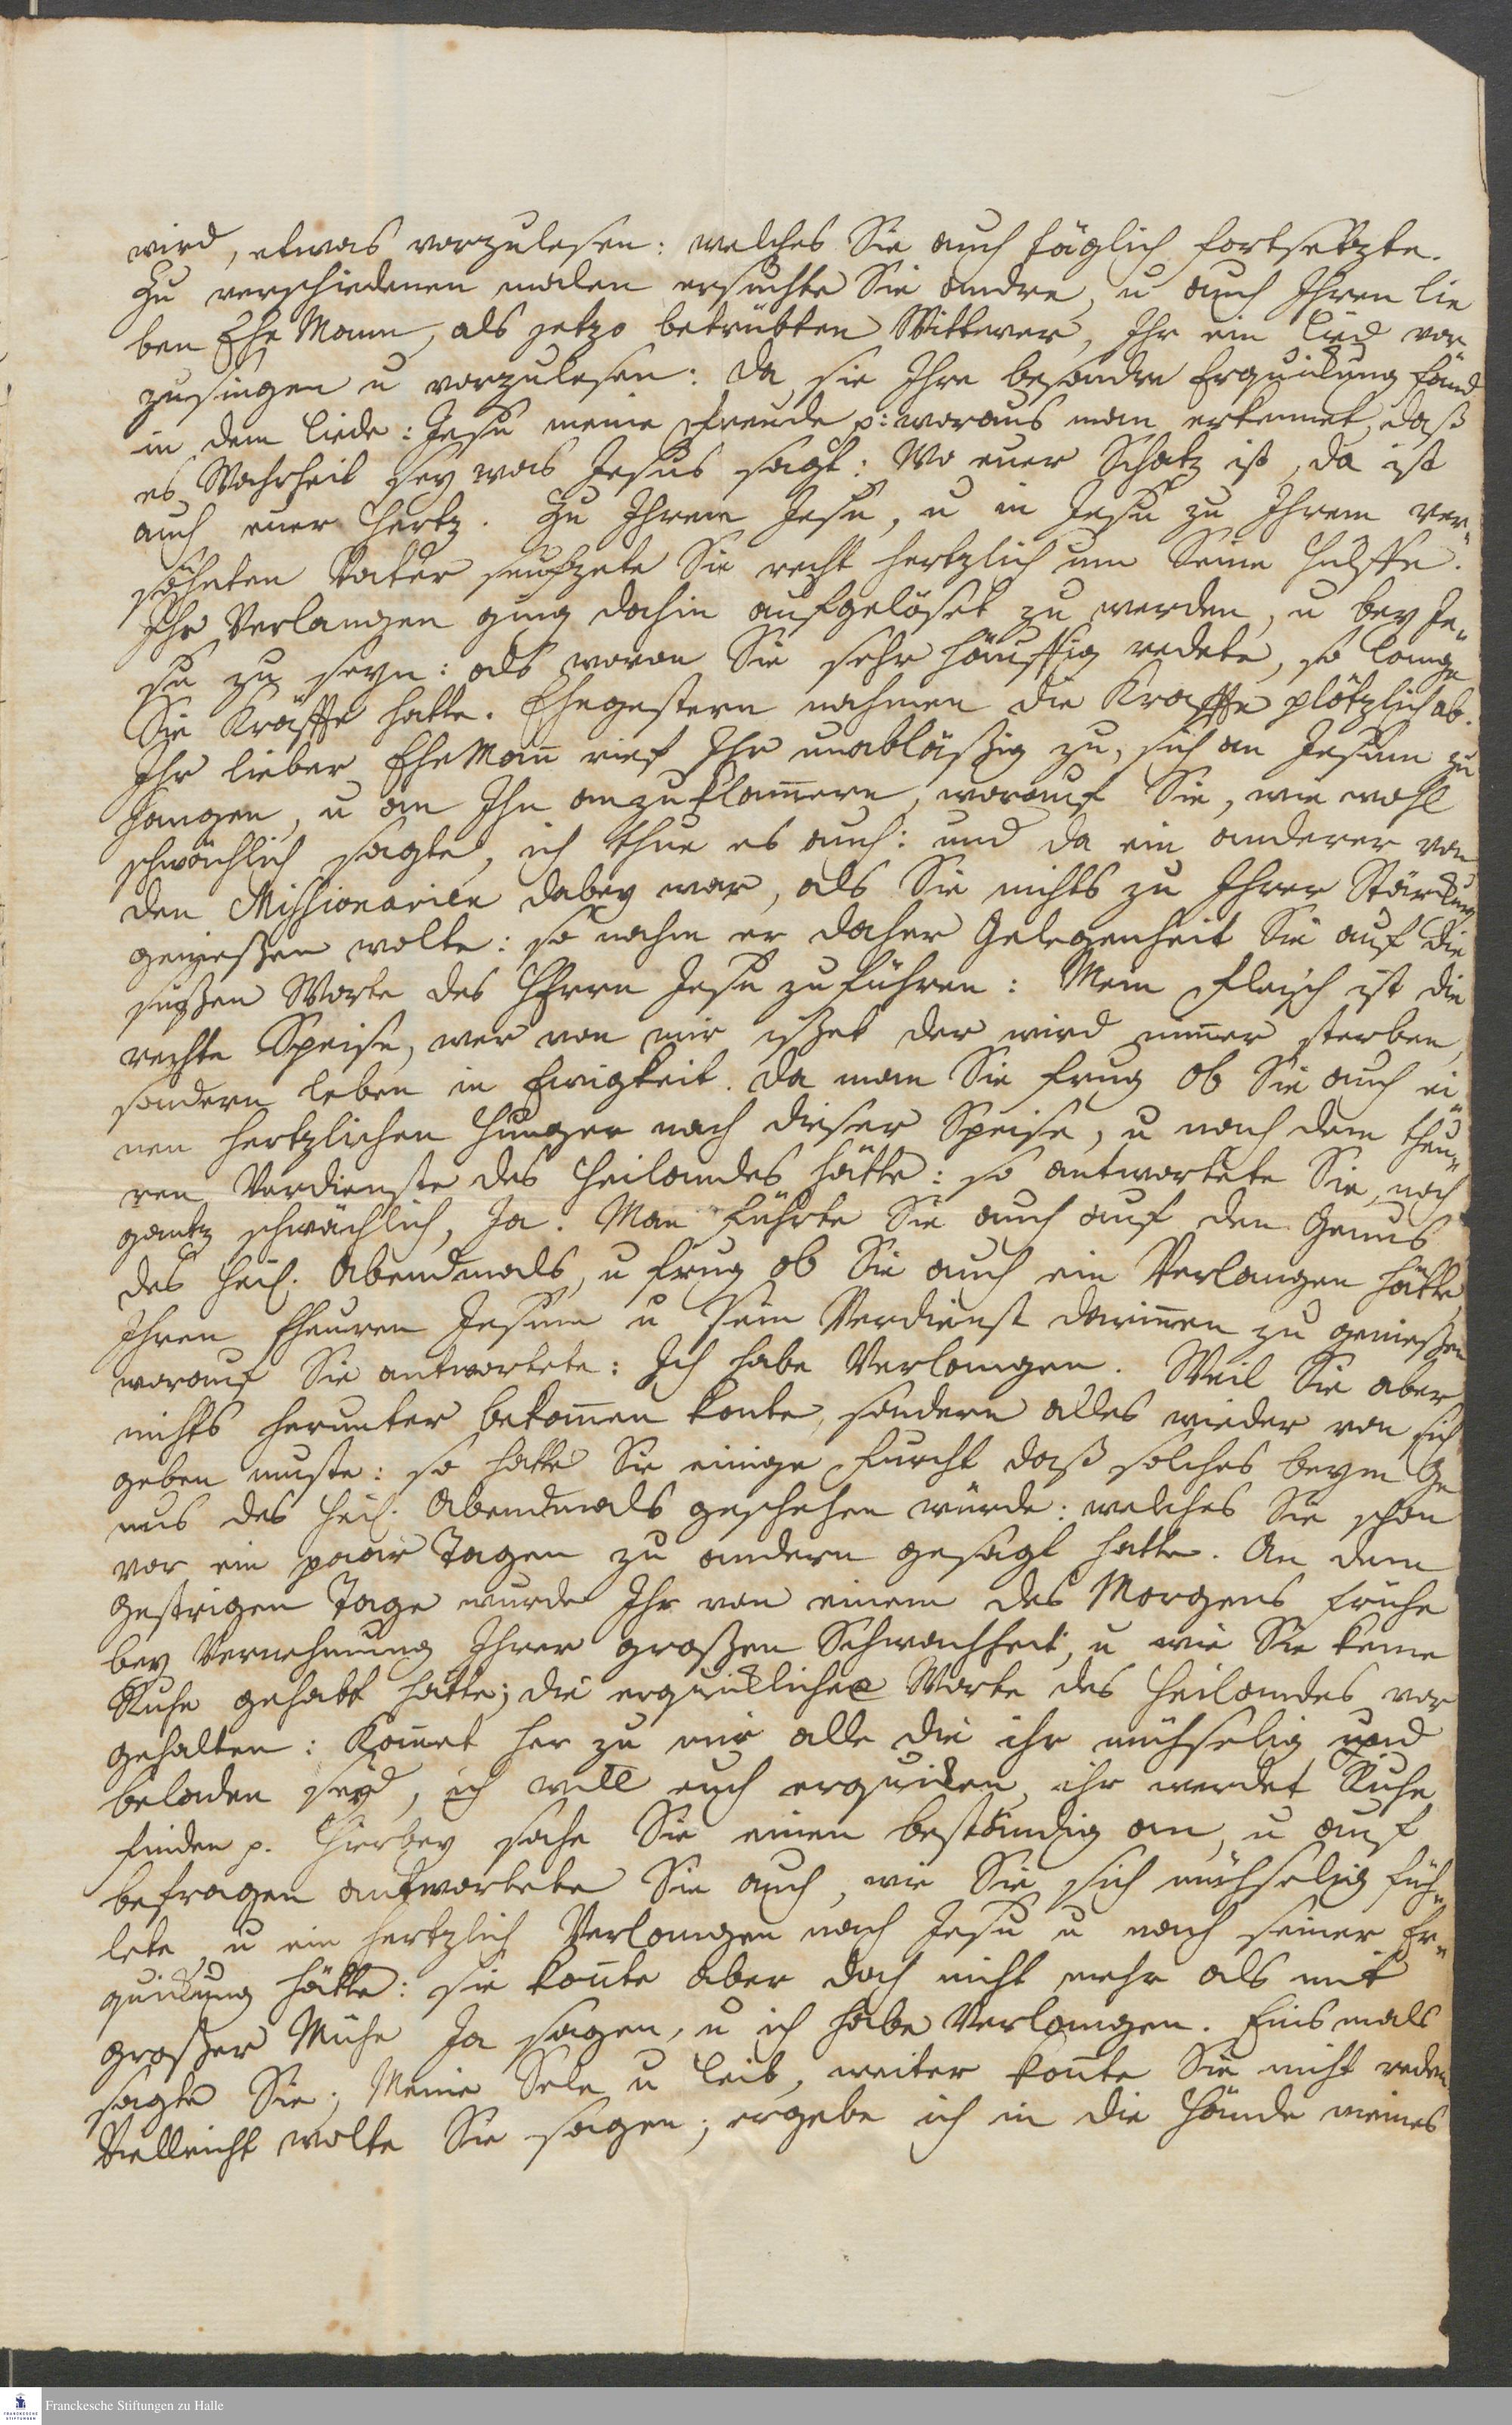 wird, etwas vorzulesen: welches Sie auch täglich fortsetzte.
Zu verschiedenen malen ersuchte Sie andre, u auch Ihren lie
ben Ehe Mann, als jetzo betrübten Wittwer, Ihr ein Lied vor
zusingen u vorzulesen: da sie Ihre besondre Erquickung fänd
in dem Liede: Jesu meine Freude p: woraus man erkennet, daß
es Wahrheit sey was Jesus sagt: Wo euer Schatz ist, da ist
auch euer Hertz. Zu Ihrem Jesu, u in Jesu zu Ihrem ver„
söhnten Vater seufzete Sie recht hertzlich um Seine Hülffe.
Ihr Verlangen ging dahin aufgelöset zu werden, u bey Je„
su zu seyn: als wovon Sie sehr häuffig redete, so lange
Sie Kräffte hatte. Ehegestern nahmen die Kräffte plötzlich ab.
Ihr lieber Ehe Mañ rief Ihr unabläßig zu, sich an Jesum zu
hangen, u an Ihn anzuklam̄ern, worauf Sie, wie wohl
schwächlich sagte, ich thue es auch: und da ein anderer von
den Missionarien dabey war, als Sie nichts zu Ihrer Stärckung
geniessen wolte: so nahm er daher Gelegenheit Sie auf die
süßen Worte des HErrn Jesu zu führen: Mein Fleisch ist die
rechte Speise, wer von mir ißet der wird nim̄er sterben,
sondern leben in Ewigkeit. Da man Sie frug ob Sie auch ei„
nen hertzlichen Hunger nach dieser Speise, u nach dem theu„
ren Verdienste des Heilandes hätte: so antwortete Sie, noch
gantz schwächlich, Ja. Man führte Sie auch auf den Genus
des Heil. Abendmals, u frug ob Sie auch ein Verlangen hätte
Ihren theuren Jesum u Sein Verdienst darinnen zu geniessen
worauf Sie antwortete: Ich habe Verlangen. Weil Sie aber
nichts herunter bekom̄en konte, sondern alles wieder von sich
geben muste: so hatte Sie einige Furcht daß solches beym Ge
nus des Heil. Abendmals geschehen würde: welches Sie schon
vor ein paar Tagen zu andern gesagt hatte. An dem
gestrigen Tage wurde Ihr von einem des Morgens frühe
bey Vernehmung Ihrer großen Schwachheit, u wie Sie keine
Ruhe gehabt hätte; die erquicklichen Worte des Heilandes vor
gehalten: Kom̄et her zu mir alle die ihr mühselig und
beladen seyd, ich will euch erquicken, ihr werdet Ruhe
finden p. Hierbey sahe Sie einen beständig an, u auf
befragen antwortete Sie auch, wie Sie sich mühselig füh„
lete, u ein hertzlich Verlangen nach Jesu u nach seiner Er„
quickung hätte: sie koñte aber doch nicht mehr als mit
großer Mühe Ja sagen, u ich habe Verlangen. Einsmals
sagte Sie; Meine Sele u Leib, weiter koñte Sie nicht reden
Vielleicht wolte Sie sagen; ergebe ich in die Hände meines
Franckesche Stiftungen zu Halle
FRANCKESCHE STIFTUNGEN